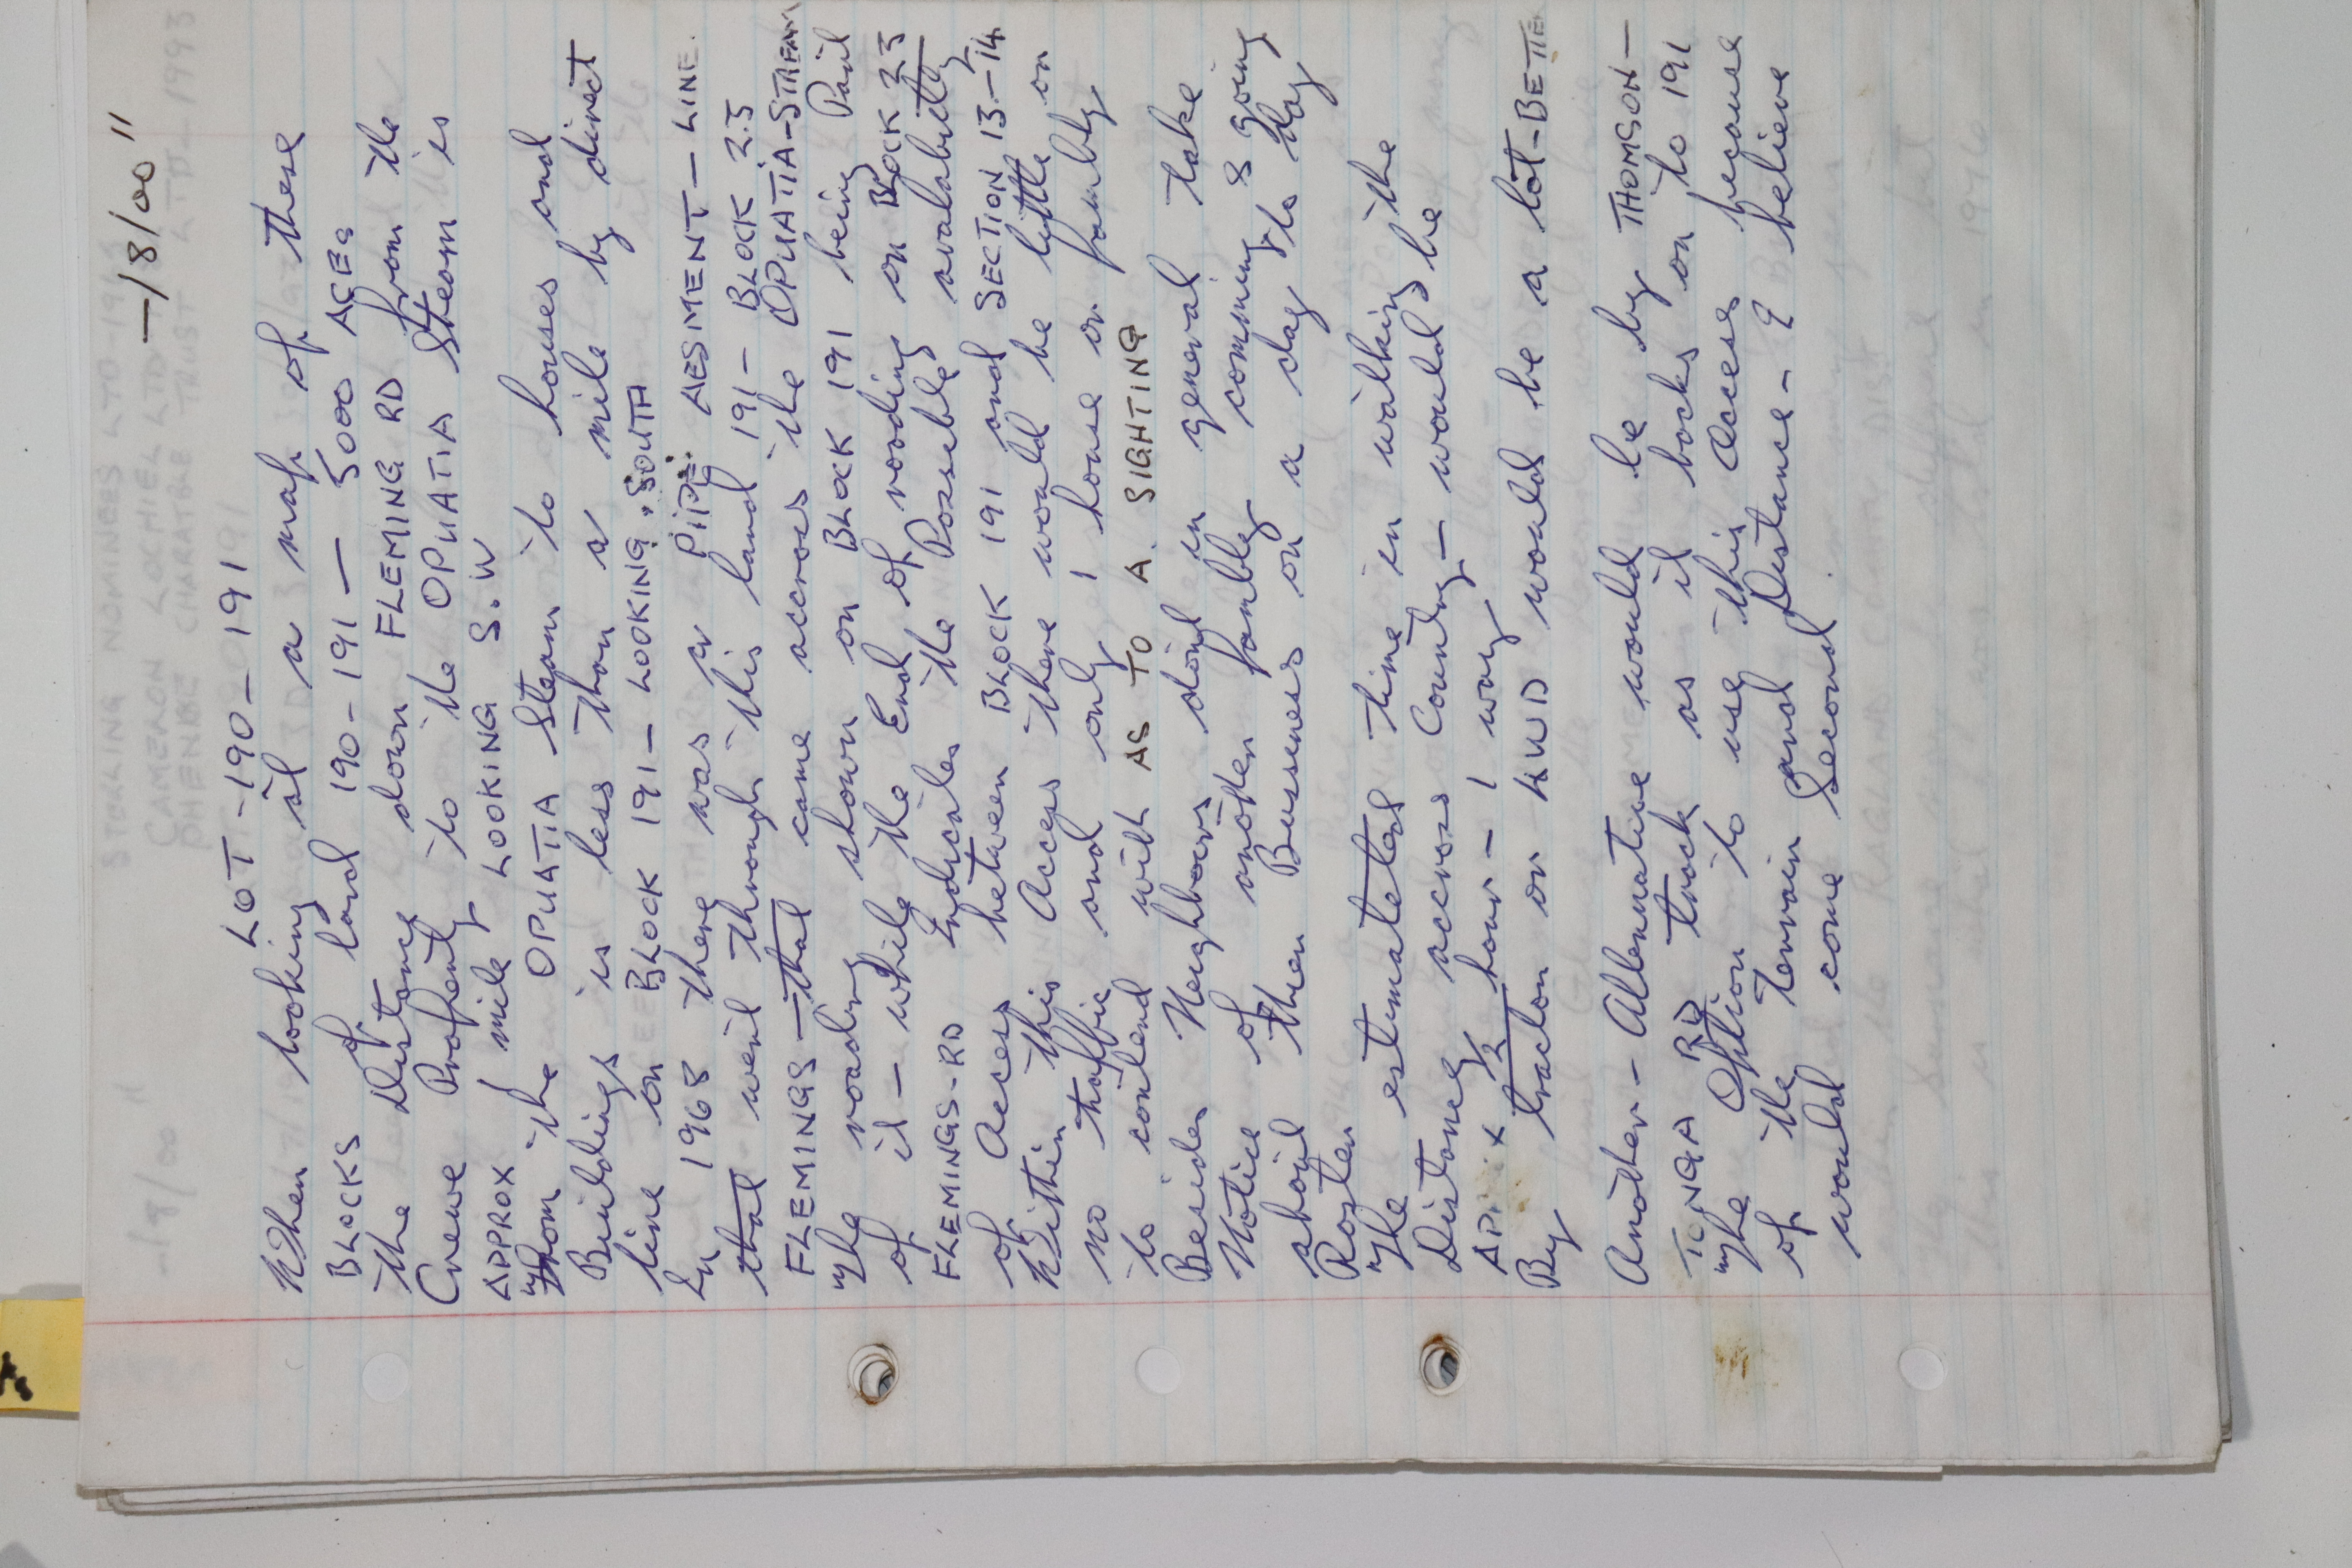 —/8/00"
LOT-190-191
When looking at a map of these
BLOCKS of land 190-191 — 5000 ACES
the Distance down FLEMING RD from the
Crewe Profenty to the OPUATIA Steam is
APPROX mile LOOKING S.W
From the OPUATIA Steam to houses and
Buildings is less than a mile by direct
line on BLOCK 191 — LOOKING "SOUTH
In 1968 there was a PIPE AESMENT — LINE.
that went through this land 191 — BLOCK 23
FLEMINGS — that came accross the OPUATIA-STREAM
The roading shown on BLOCK 191 being Part
of it — while the End of roading on BLOCK 23
FLEMINGS-RD Indicates the Possible avalabitity
of Access between BLOCK 191 and SECTION 13-14
Within this Access there would be little on
no thaffic and only 1 house or fambly
to contend with AS TO A SIGHTING
Besides Neighbours dont in general take
Notice of another fambly comming & going
about then Bussness on a day to day
Rosten
The estimated time in walking the
Distance accross Country — would be
APPIX ½ hour — 1 way
By tracton or 4WD would be a lot-BETTER
Another — Allernative would be by THOMSON —
TONGA RD track as it backs on to 191
The Option to use this Access because
of the Terrain and Distance — I believe
would come Second.